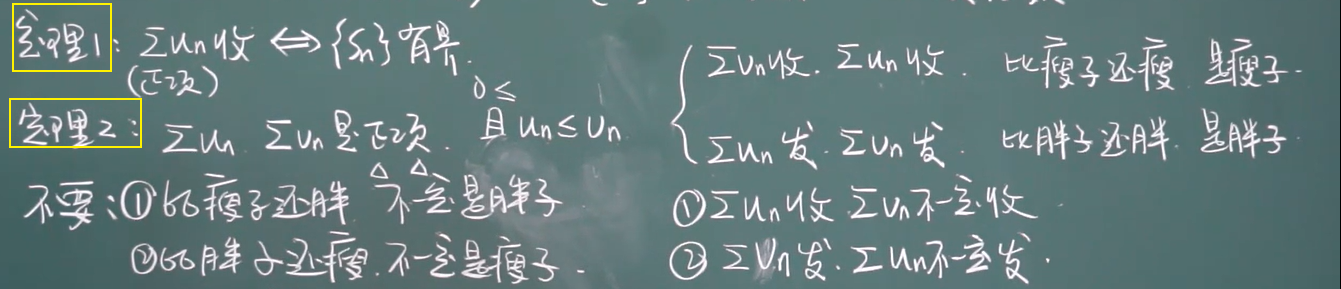 定理1: ΣUn收 ⇔ {Sn}有界.
(正项)
定理2: ΣUn ΣVn是正项. 且 0≤ Un≤Vn
{ ΣVn收. ΣUn收. 比瘦子还瘦 是瘦子.
ΣUn发. ΣVn发. 比胖子还胖. 是胖子
不要:①比瘦子还胖 不一定是胖子
②比胖子还瘦.不一定是瘦子.
①ΣUn收 ΣVn不一定收.
②ΣVn发. ΣUn不一定发.